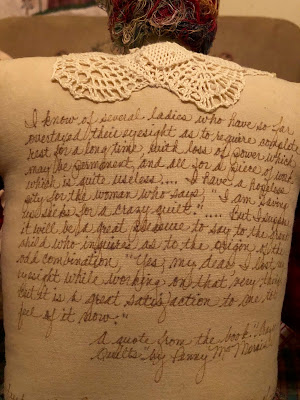 I know of several ladies who have so far
overtaxed their eyesight as to require complete
rest for a long time with loss of power which
may be permanent, and all for a piece of work
which is quite useless.... I have a hopeless
pity for the woman who says, "I am saving
silks for a crazy quilt." .... But I suppose
it will be a great pleasure to say to the grand
child who inquires as to the origin of the
odd combination "Yes, my dear I lost my
eyesight while working on that very thing
but it is a great satisfaction to me to
feel of it now."
A quote from the book "Crazy
Quilts" by Penny Mc Morris